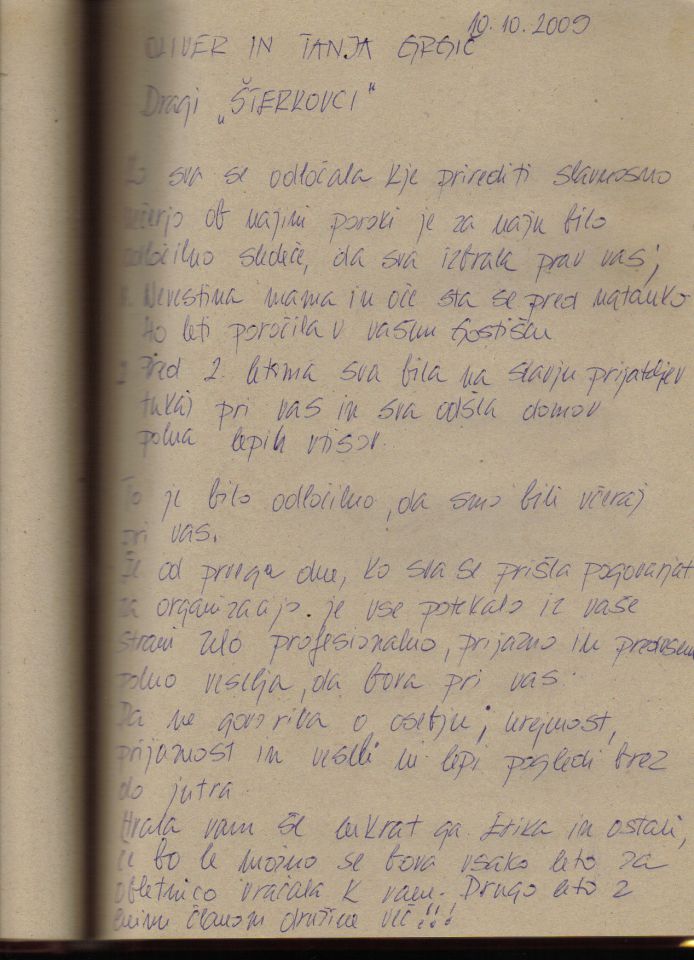 10.10.2009
OLIVER IN TANJA GRGIČ
Dragi „ŠTERKOVCI"
Ko sva se odločala kje prirediti slavnosno
večerjo ob najini poroki je za naju bilo
odločilno sledeče, da sva izbrala prav vas;
1. Nevestina mama in oče sta se pred natanko
40 leti poročila v vašem Gostišču
2. Pred 2. letoma sva bila na slavju prijateljev
tukaj pri vas in sva odšla domov
polna lepih vtisov.
To je bilo odločilno, da smo bili včeraj
pri vas.
Že od prvega dne, ko sva se prišla pogovarjat
za organizacijo. je vse potekalo iz vaše
strani zelo profesionalno, prijazno in predvsem
polno veselja, da bova pri vas.
Da ne govoriva o osebju; urejnost,
prijaznost in veseli in lepi pogledi brez
do jutra.
Hvala vam še enkrat ga. Erika in ostali,
če bo le možno se bova vsako leto za
obletnico vračala k vam. Drugo leto z
enim članom družine več!!!